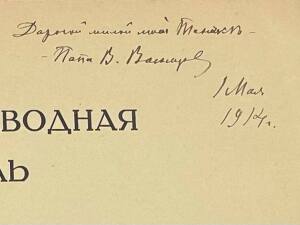 Дорогой милой моей Танечке -
- Папа В. Васнецов
1 Мая
1914 г.
ВОДНАЯ
ЛЬ